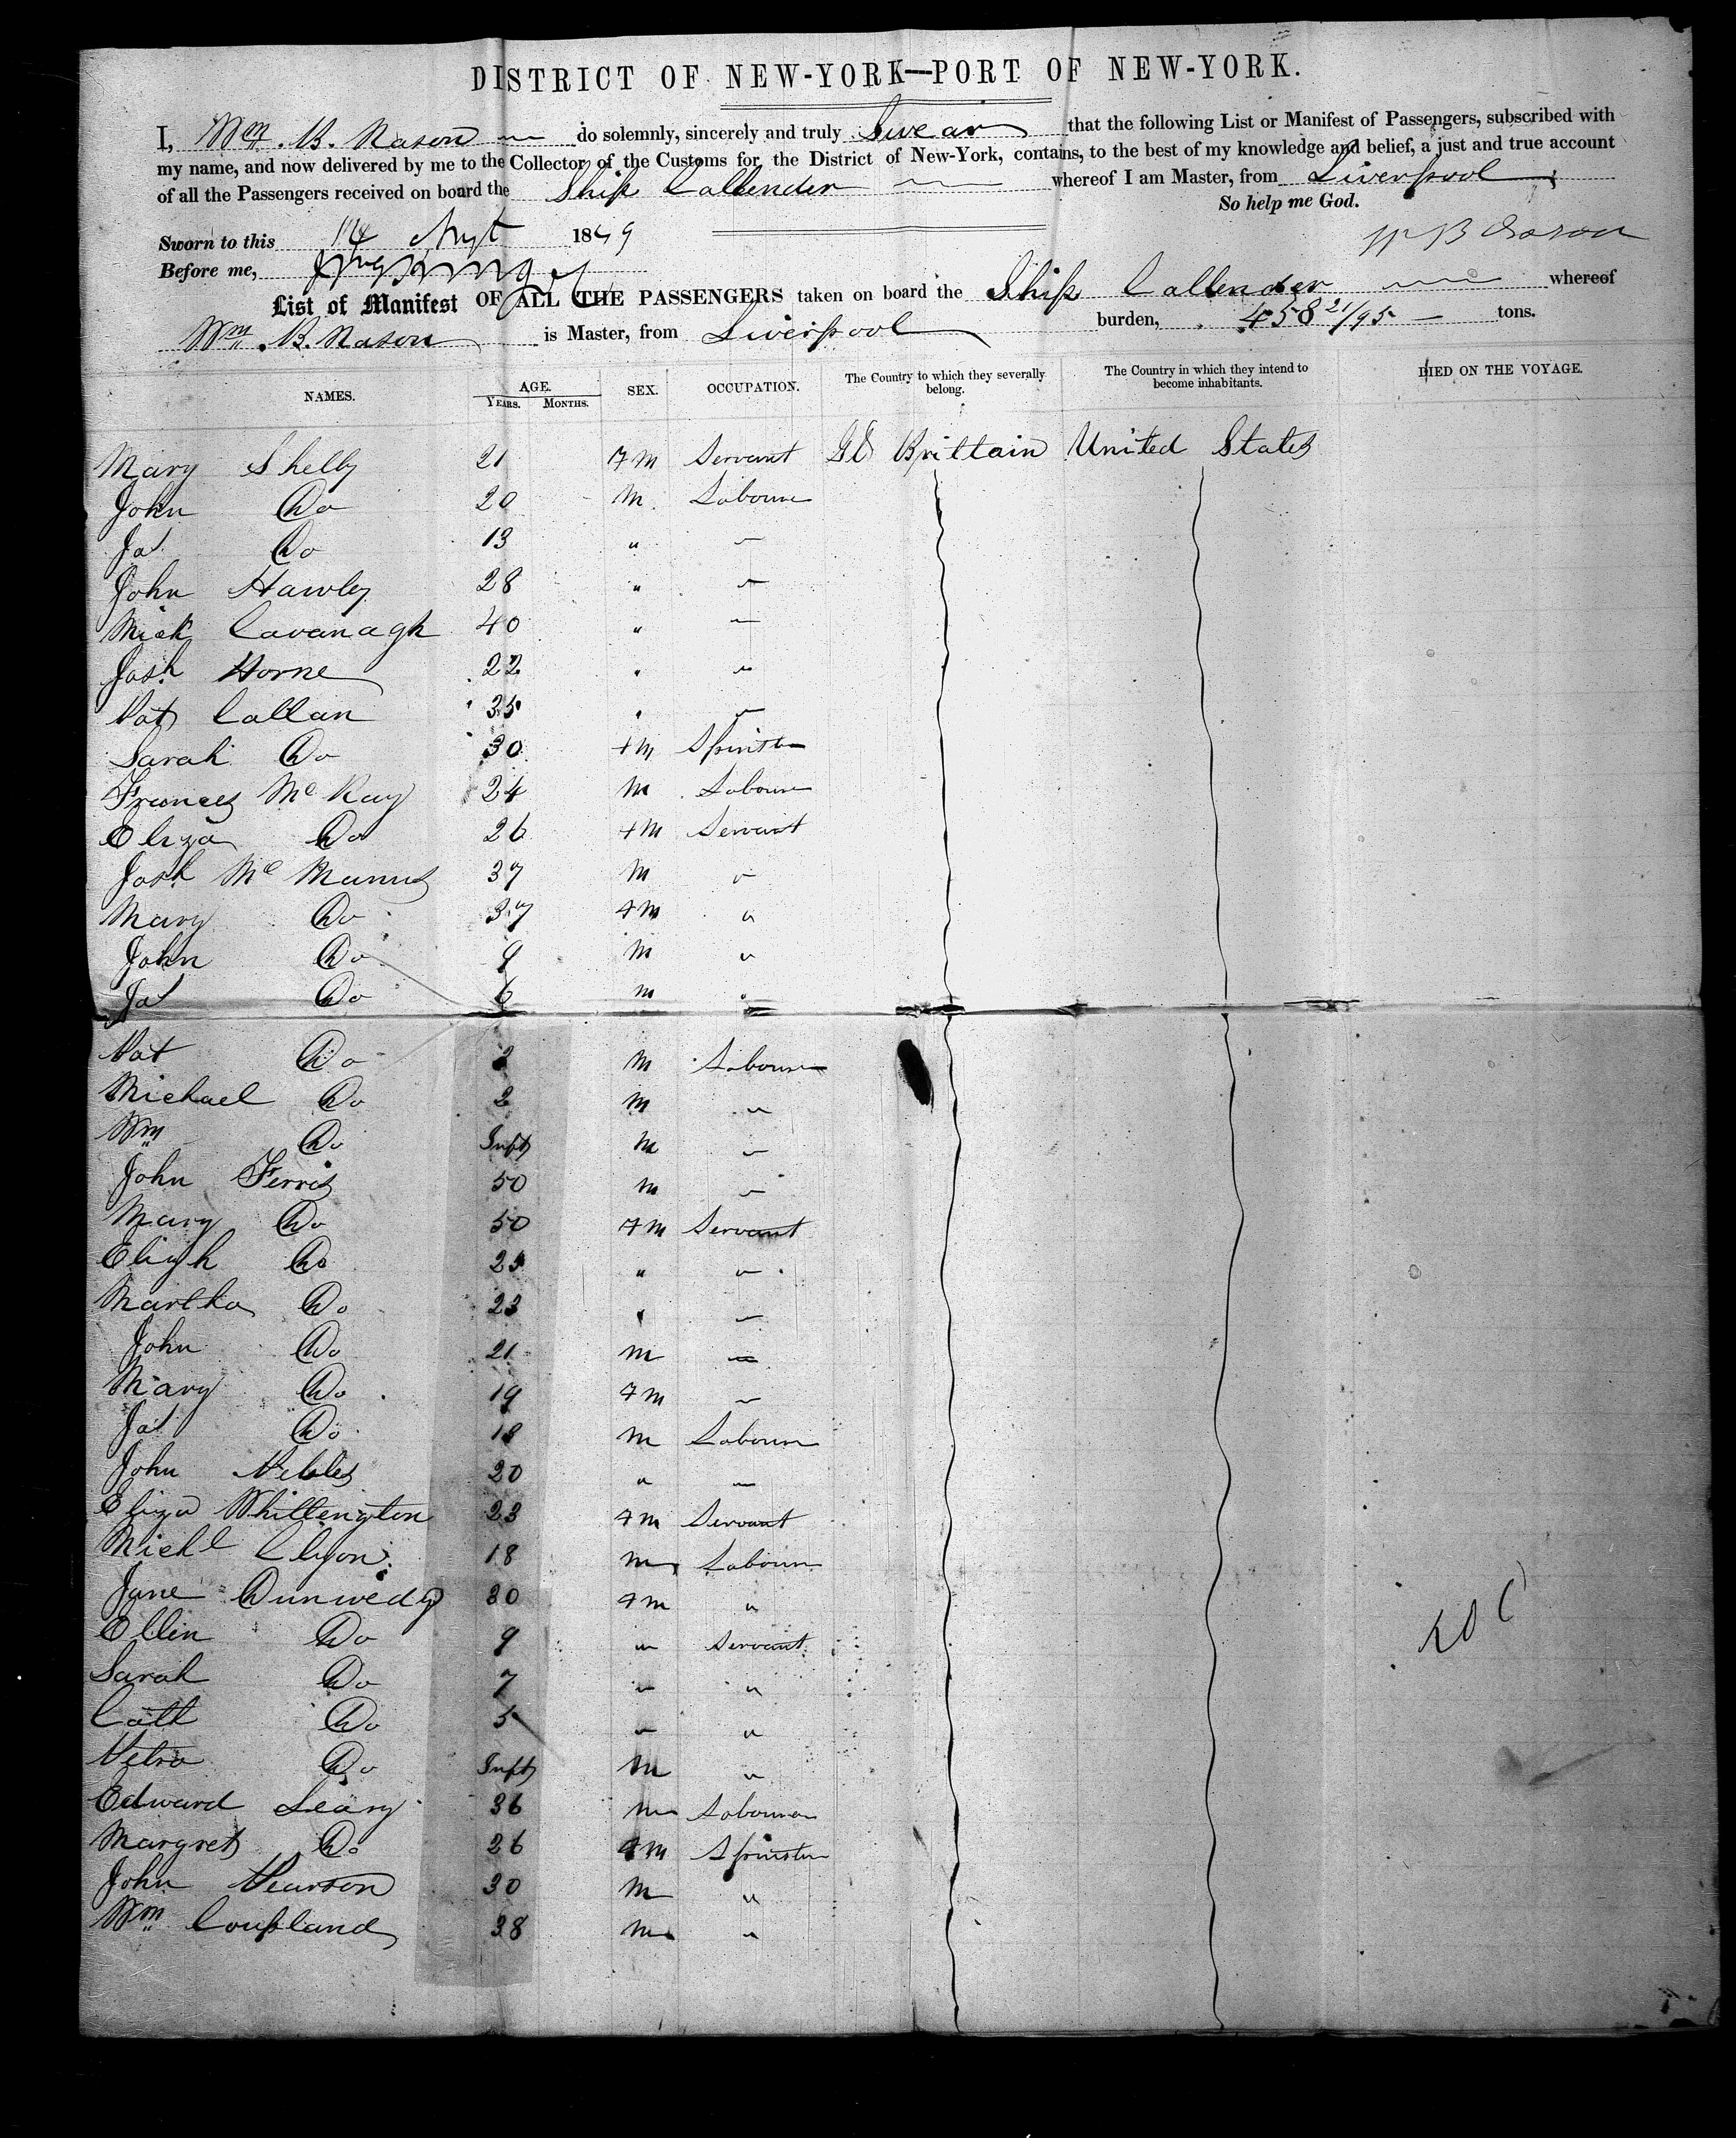 DISTRICT OF NEW-YORK—PORT OF NEW-YORK.
I, Wm. B. Nason do solemnly, sincerely and truly Swear that the following List or Manifest of Passengers, subscribed with
my name, and now delivered by me to the Collector of the Customs for the District of New-York, contains, to the best of my knowledge and belief, a just and true account
of all the Passengers received on board the Ship Callender whereof I am Master, from Liverpool
So help me God.
Sworn to this 14 1849
W B Nason
Before me,
List of Manifest OF ALL THE PASSENGERS taken on board the Ship Callender whereof
Wm. B. Nason is Master, from Liverpool burden, 458 21/95 tons.
NAMES. AGE. YEARS. MONTHS. SEX. OCCUPATION. The Country to which they severally belong. The Country in which they intend to become inhabitants. DIED ON THE VOYAGE.
Mary Shelly 21 Fm Servant Gt Brittain United States
John Do 20 M Labourer
Jas Do 13 "
John Hawley 28 "
Mick Cavanagh 40 "
Josh Horne 22 " "
Pat Callan 35 " "
Sarah Do 30 Fm Spinster
Frances Mc Kay 24 M Labourer
Eliza Do 26 Fm Servant
Josh Mc Manus 37 M "
Mary Do 37 Fm "
John Do 9 M "
Jas Do 6 M "
Pat Do 2 M Labourer
Michael Do 2 M "
Wm Do Inft M "
John Ferris 50 M "
Mary Do 50 Fm Servant
Eligh Do 25 " "
Martha Do 23 " "
John Do 21 M "
Mary Do 19 Fm "
Jas Do 18 M Labourer
John 20 " "
Eliza Whittington 23 Fm Servant
Michl Clyon 18 M Labourer
Jane Dunwedy 30 Fm "
Ellin Do 9 " Servant
Sarah Do 7 " "
Cath Do 5 " "
Do Inft M "
Edward Leary 36 M Labourer
Margret Do 26 Fm Spinster
John Pearson 30 M "
Wm Coupland 38 M "